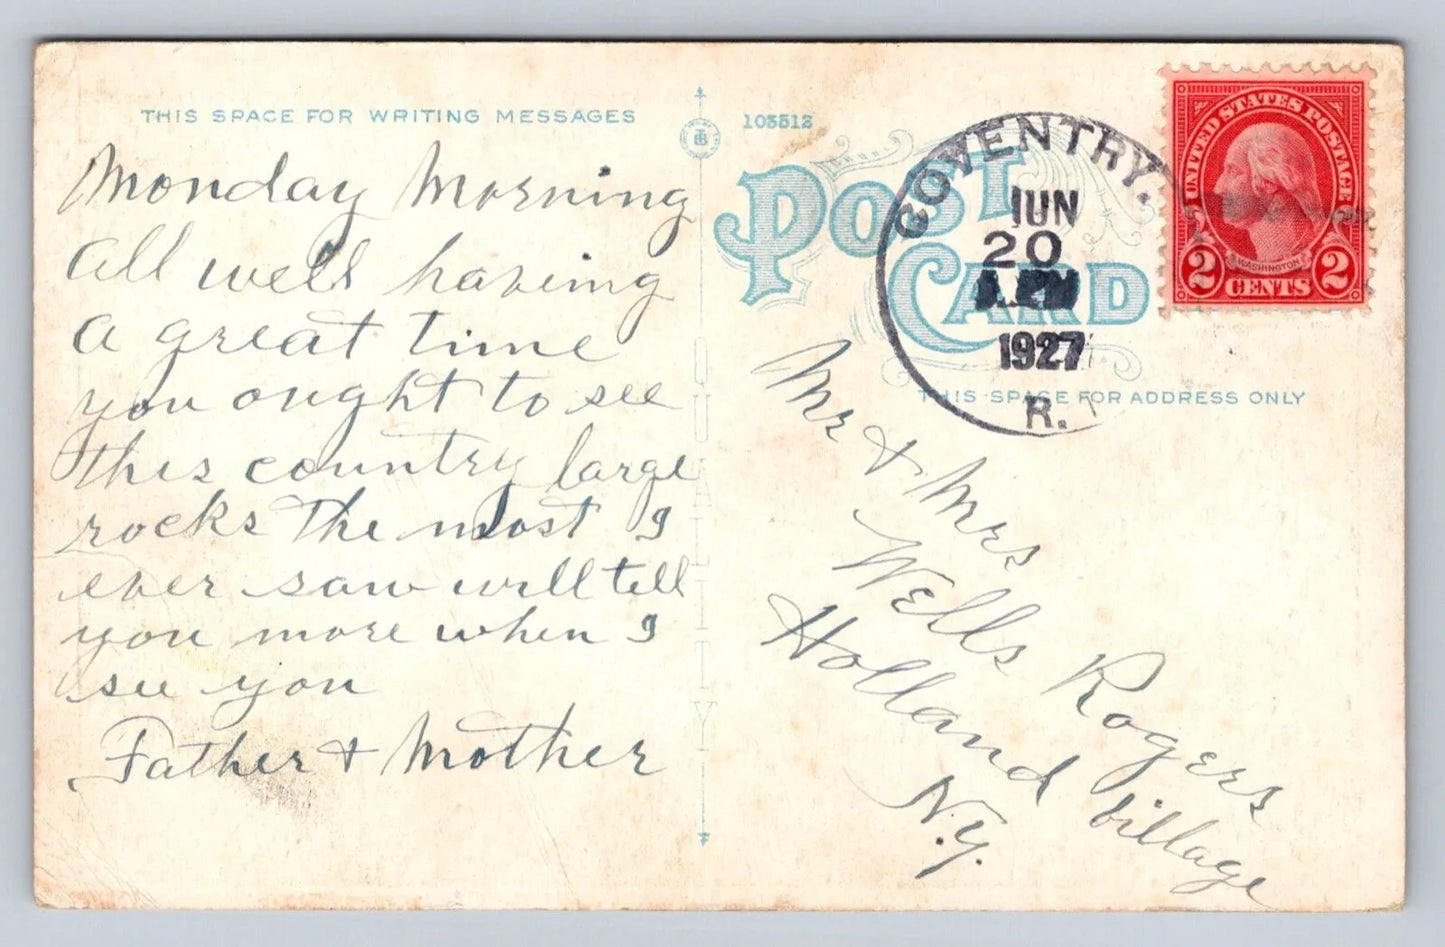 THIS SPACE FOR WRITING MESSAGES
Monday Morning
All well having
a great time
you ought to see
this country large
rocks the most I
ever saw will tell
you more when I
see you
Father & Mother
105512
POST
CARD
THIS SPACE FOR ADDRESS ONLY
COVENTRY.
JUN
20
1927
R.
UNITED STATES POSTAGE
WASHINGTON
2 CENTS 2
Mr & Mrs
Wells Rogers
Holland Village
N.Y.